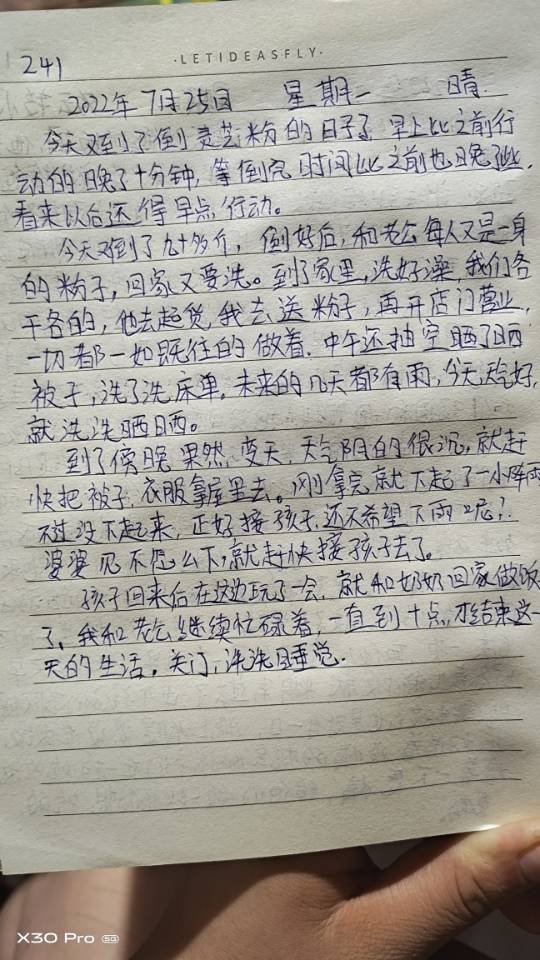 ·LETIDEASFLY·
241
2022年7月25日 星期一 晴
今天又到了倒灵芝粉的日子了，早上比之前行
动的晚了十分钟，等倒完时间比之前也晚了些，
看来以后还得早点行动。
今天又倒了九十多斤，倒好后，和老公每人又是一身
的粉子，回家又要洗。到了家里，洗好澡，我们各
干各的，他去起货，我去送粉子，再开店门营业，
一切都一如既往的做着，中午还抽空晒了晒
被子，洗了洗床单，未来的几天都有雨，今天天气好，
就洗洗晒晒。
到了傍晚果然，变天，天气阴的很沉，就赶
快把被子，衣服拿屋里去。刚拿完就下起了一小阵雨
不过没下起来，正好接孩子，还不希望下雨呢！
婆婆见不怎么下，就赶快接孩子去了。
孩子回来后在这边玩了一会，就和奶奶回家做饭
了，我和老公继续忙碌着，一直到十点，才结束这一
天的生活，关门，洗洗睡觉.
X30 Pro 5G